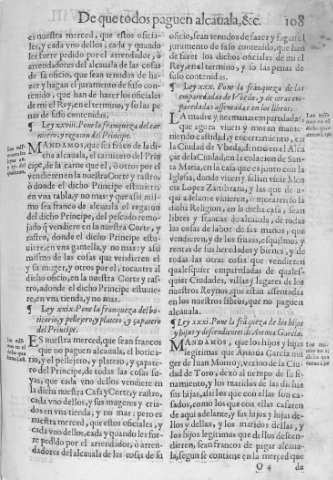 De que todos paguen alcavala, &c. 108
es nuestra merced, que estos oficia-
les, y cada vno dellos, cada y quando
les fuere pedido por el arrendador, ò
arrendadores del alcavala de las cosas
de su oficio, que sean tenidos de ha-
zer y hagan el juramento de suso con-
tenido, que han de hazer los oficiales
de mi el Rey, en el termino, y so las pe-
nas de suso contenidas.
Príncipe.
MANDAMOS, que sea franco de la di-
cha alcavala, el carnicero del Prin-
cipe, de la carne que el, ò otro por el
vendieren en la nuestra Corte y rastro,
ò donde el dicho Principe estuviere
en vna tabla, y no mas: y que assi mis-
mo sea franco de alcavala el regaton
del dicho Principe, del pescado remo-
jado q̃ vendiere en la nuestra Corte, y
rastro, donde el dicho Principe estu-
viere, en vna gavella, y no mas: y assi
mismo de las cosas que vendieren el
y su muger, y otros por el, tocantes al
dicho oficio, en la nuestra Corte y ras-
tro, adonde el dicho Principe estuvie-
re, en vna tienda, y no mas.
del Principe.
ES nuestra merced, que sean francos
que no paguen alcavala, el botica-
rio, y el pellejero, y platero, y çapate-
ro del Principe, de todas las cosas su-
yas, que cada vno dellos vendiere en
la dicha nuestra Casa y Corte, y rastro,
cada vno dellos, y sus mugeres y cria-
dos en vna tienda, y no mas: pero es
nuestra merced, que estos oficiales, y
cada vno dellos, cada y quando les fue-
re pedido por el arrendador, ò arren-
dadores del alcavala de las cosas de su
oficio, sean tenudos de fazer y fagan el
juramento de suso contenido, que han
de fazer los dichos oficiales de mi el
Rey, en el termino, y so las penas de
suso contenidas.
LA madre y hermanas emparedadas,
que agora viven y moran mante-
niendo castidad, y encerramiento, en la
Ciudad de Vbeda, dentro en el Alca-
çar de la Ciudad, en la colacion de San-
ta Maria, en la casa que es junto con la
Iglesia, donde vivir
Lopez Zambrana, y las que de a-
qui adelante vinieren, ò moraren so la
dicha Religion, en la dicha casa, sean
libres y francas de alcavala, de todas
las cosas de labor de sus manos, que
vendieren, y de los frutos, esquilmos, y
rentas de sus heredades y bienes, y de
todas las otras cosas que vendieren
qualesquier emparedadas de quales-
quier Ciudades, villas y lugares de los
nuestros Reynos, que estan assentadas
en los nuestros libros, que no paguen
alcavala.
y hijas y descendientes de Antona Garcia.
MANDAMOS, que los hijos y hijas
legitimas que Antona Garcia mu-
ger de Juan Monroy, vezino de la Ciu-
dad de Toro, dexò al tiempo de su fi-
namiento, y los maridos de las dichas
sus hijas, assi los que con ellas son ca-
sados, como los que con ellas casaren
de aqui adelante, y sus hijos y hijas de-
llos y dellas, y los maridos dellas, y
los hijos legitimos que de ellos descen-
dieren, sean francos de pagar alcava-
la, segun se contiene en la merced que
O 4 da